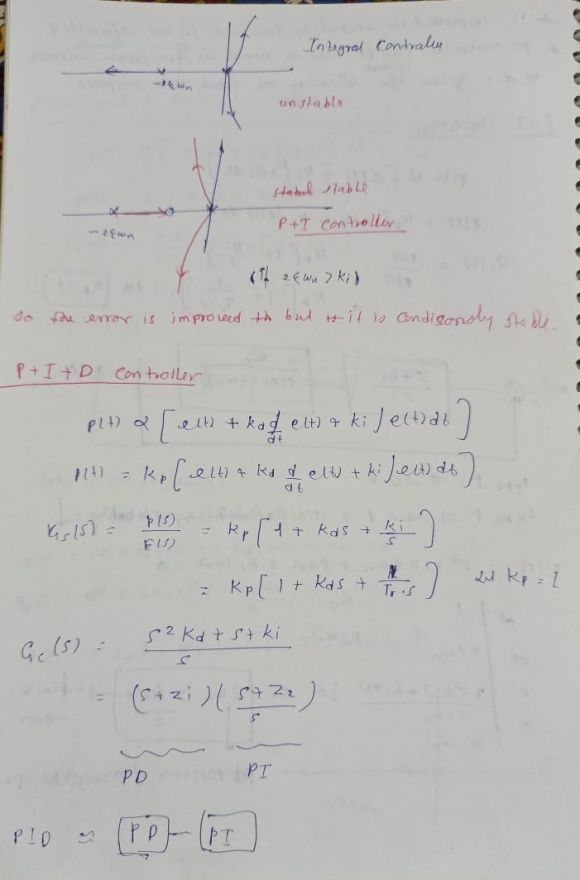 Integral Controller
-2ξωn
unstable
stable stable
P+I Controller
-2ξωn
(If 2ξωn > ki)
So the error is improved but it is condisonaly stable.
P+I+D Controller
p(t) α [ e(t) + kd d/dt e(t) + ki ∫ e(t) dt ]
p(t) = kp [ e(t) + kd d/dt e(t) + ki ∫ e(t) dt ]
Gc(s) = P(s)/E(s) = kp [ 1 + kds + ki/s ]
= kp [ 1 + kds + 1/Tr.s ] let kp = 1
Gc(s) = s² kd + s + ki / s
= (s+z1) ( s+z2 / s )
PD PI
PID ≈ [PD] - [PI]